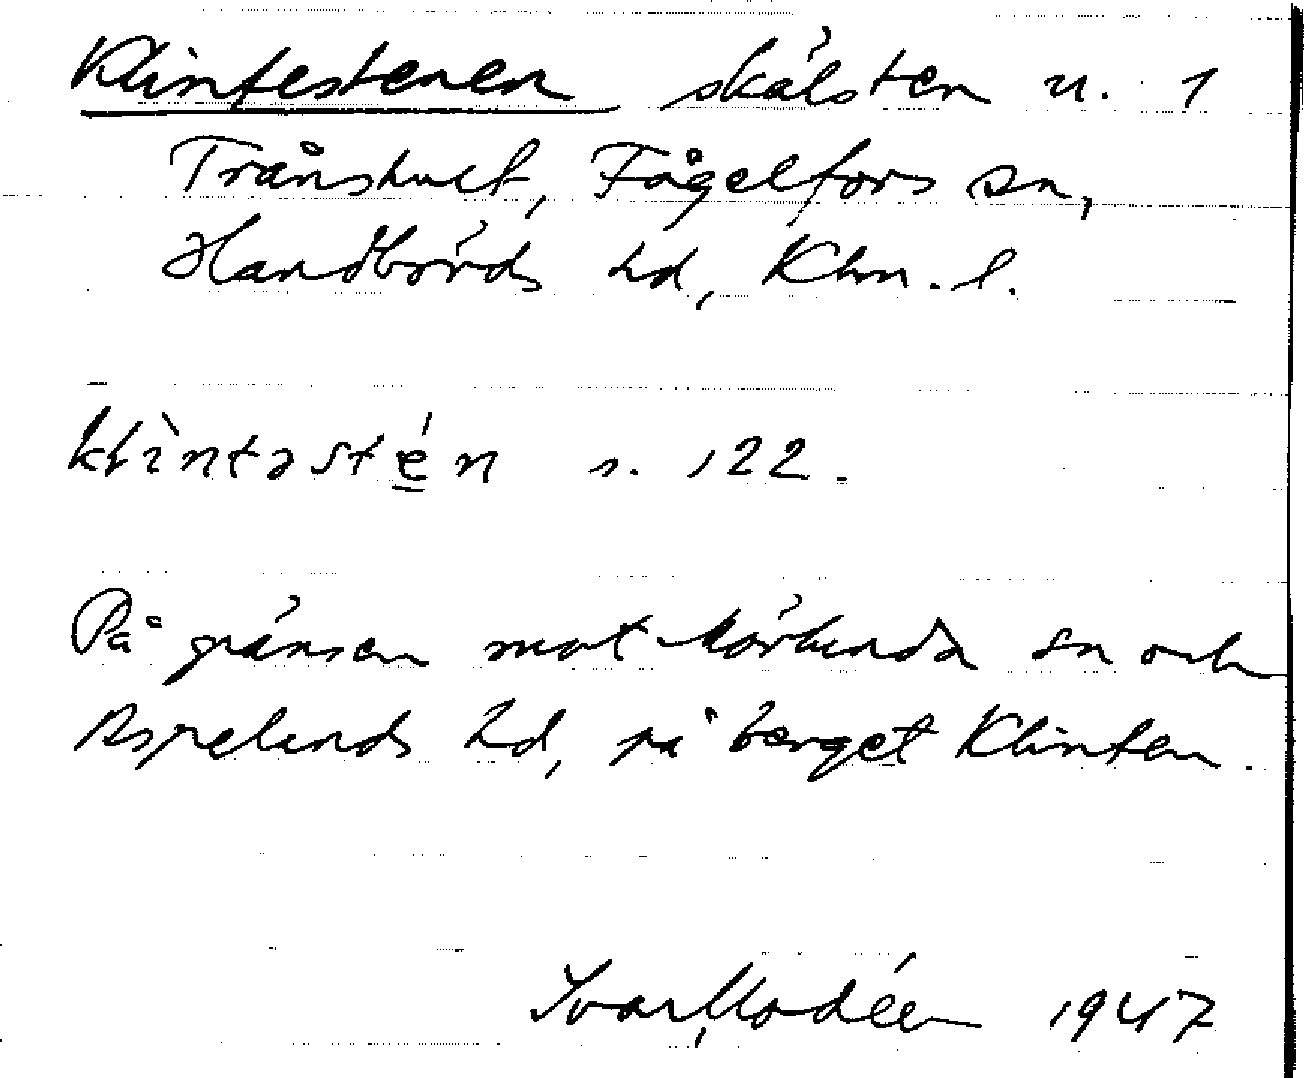 Klintestenen skälsten u. 1
Trånshult, Fågelfors sn,
Handbörds hd, Klm. l.
klìntəsté̲n s. 122.
På gränsen mot Mörlunda sn och
Aspelands hd, på berget Klinten.
Ivar Modéer 1947